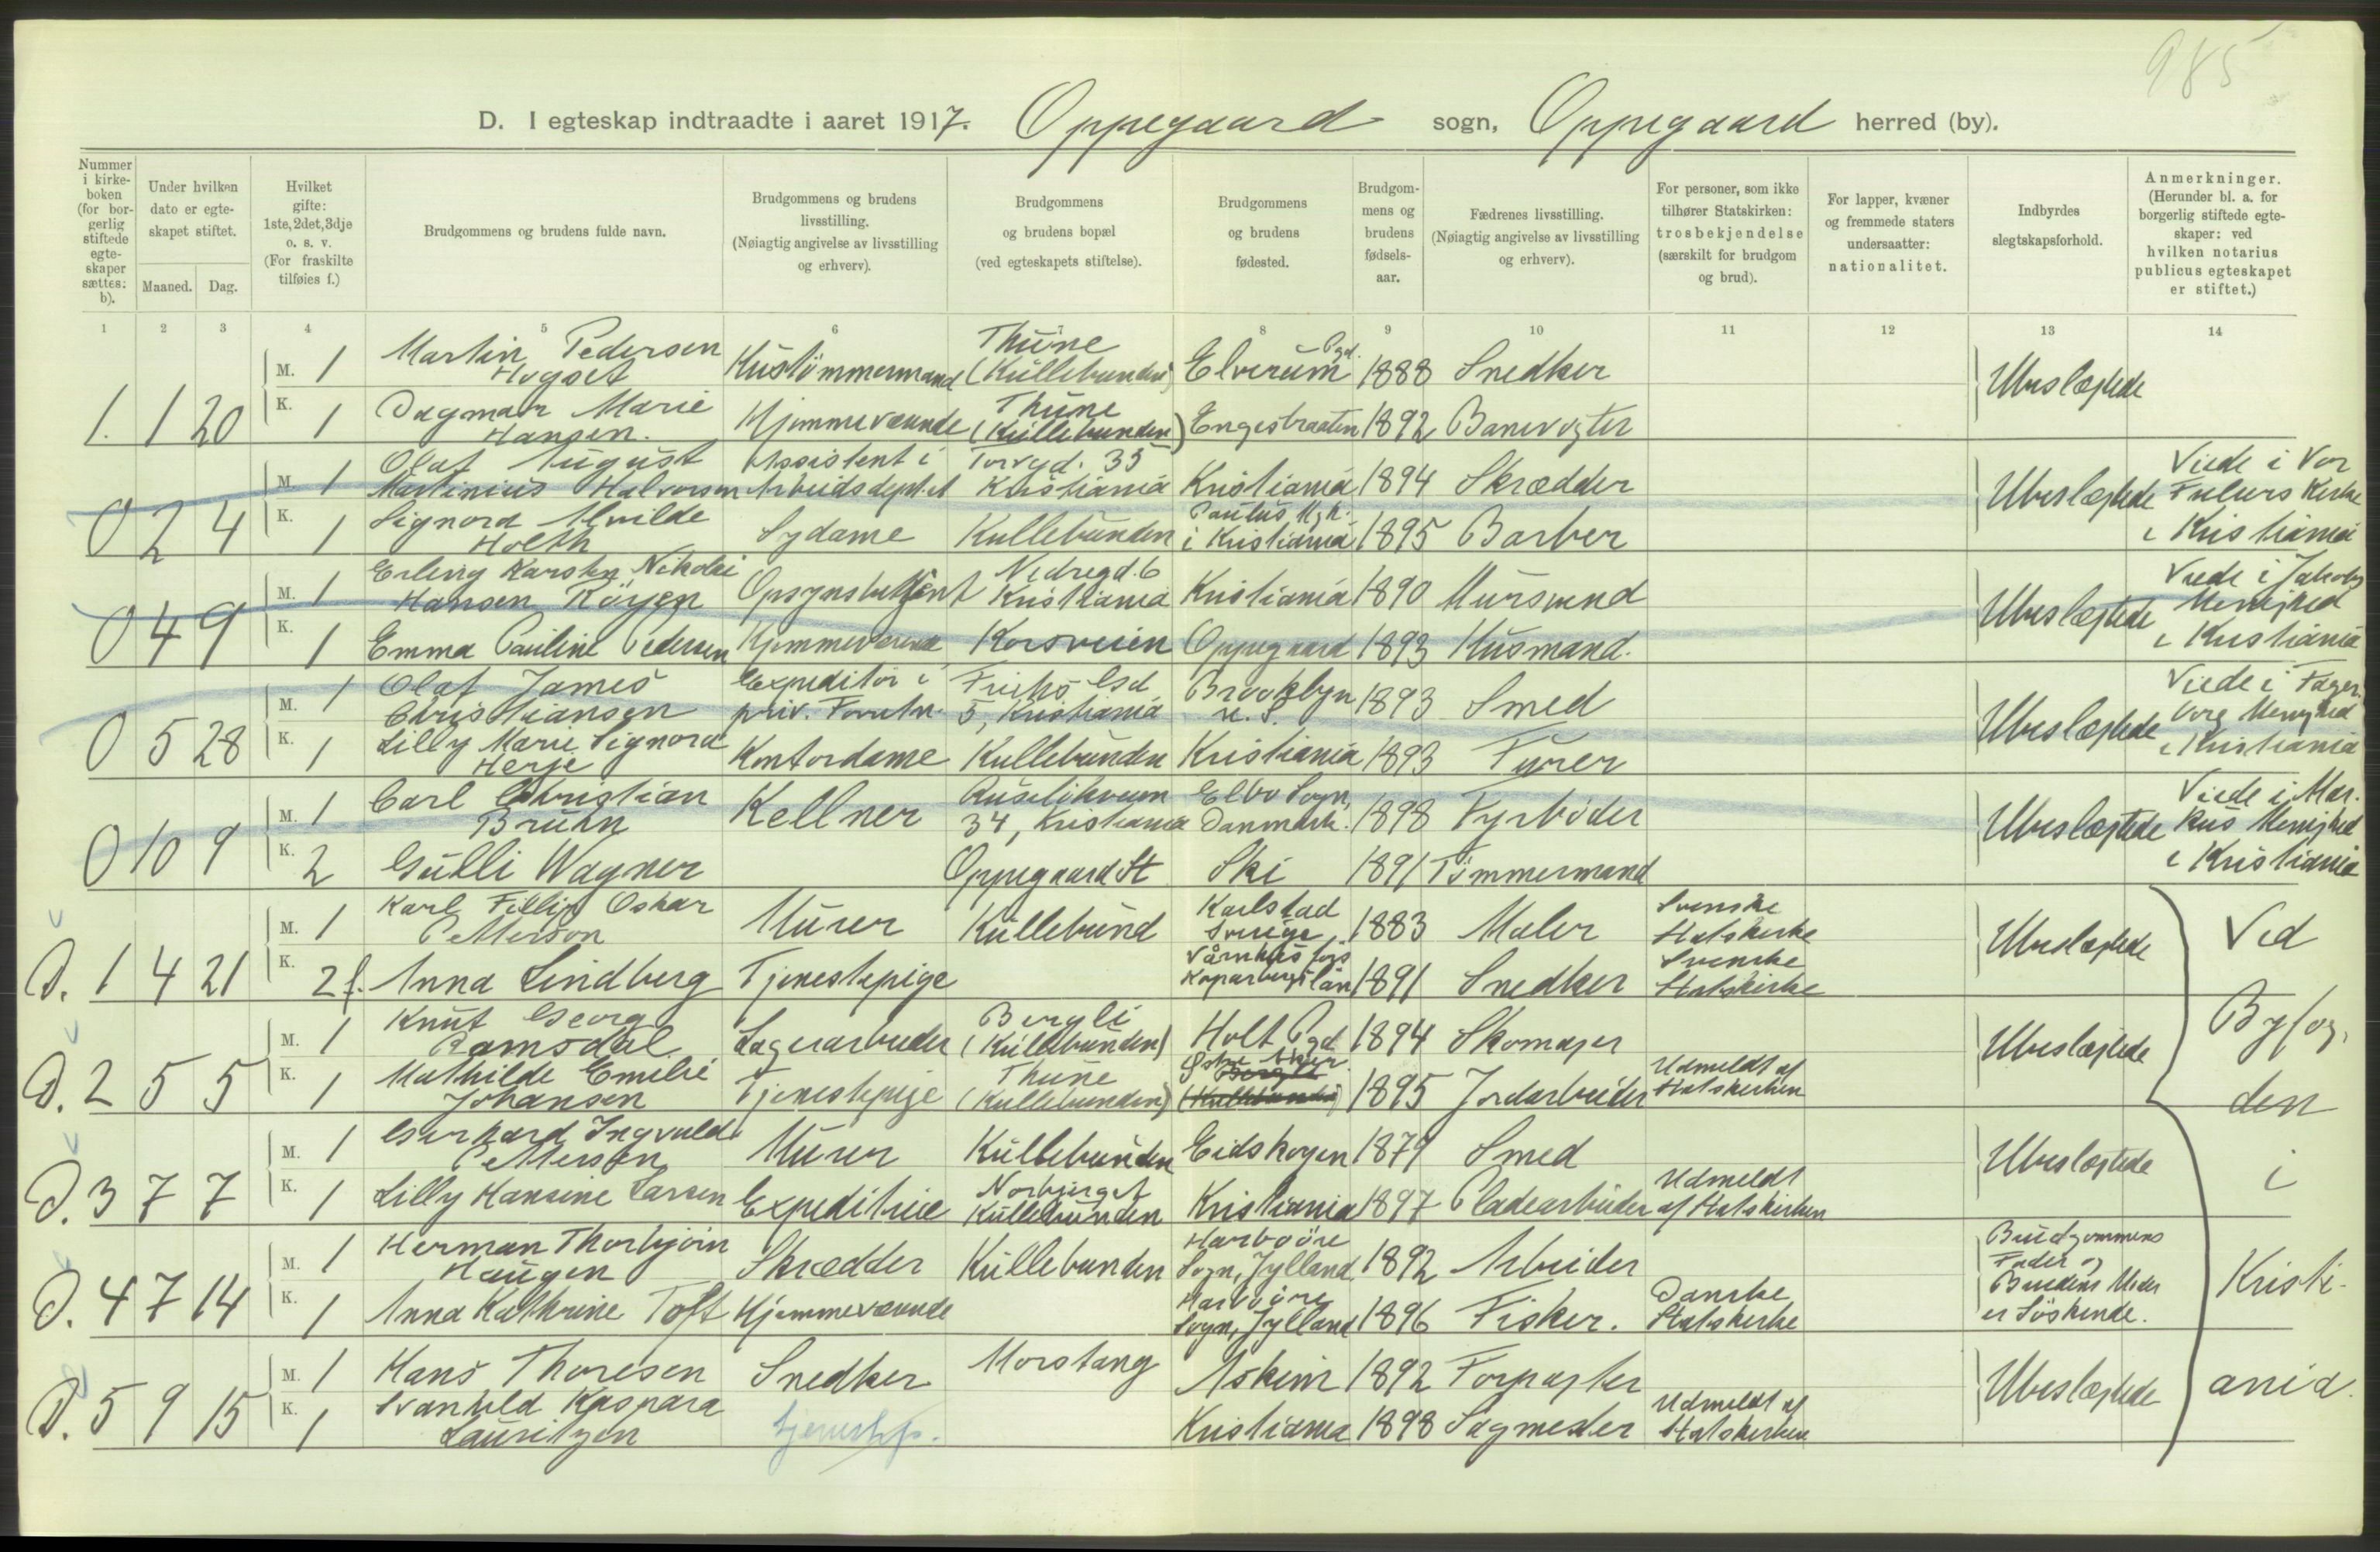 985
D. I egteskap indtraadte i aaret 1917. Oppegaard sogn, Oppegaard herred (by).
Nummer i kirkeboken (for borgerlig stiftede egteskaper sættes: b).
Under hvilken dato er egteskapet stiftet.
Maaned. Dag.
Hvilket gifte: 1ste, 2det, 3dje o. s. v. (For fraskilte tilføies f.)
Brudgommens og brudens fulde navn.
Brudgommens og brudens livsstilling. (Nøiagtig angivelse av livsstilling og erhverv).
Brudgommens og brudens bopæl (ved egteskapets stiftelse).
Brudgommens og brudens fødested.
Brudgommens og brudens fødselsaar.
Fædrenes livsstilling. (Nøiagtig angivelse av livsstilling og erhverv).
For personer, som ikke tilhører Statskirken: trosbekjendelse (særskilt for brudgom og brud).
For lapper, kvæner og fremmede staters undersaatter: nationalitet.
Indbyrdes slegtskapsforhold.
Anmerkninger. (Herunder bl. a. for borgerlig stiftede egteskaper: ved hvilken notarius publicus egteskapet er stiftet.)
1 2 3 4 5 6 7 8 9 10 11 12 13 14
M. 1 Martin Pedersen Hogset Hustømmermand Thune (Kullebunden) Elverum Pgd. 1888 Snedker Ubeslægtede
1. 1 20 K. 1 Dagmar Marie Hansen. Hjemmeværende Thune (Kullebunden) Engesbraaten 1892 Banevogter
M. 1 Olaf August Martinius Halvorsen Assistent i Arbeidsdept.et Torvgd. 35 Kristiania Kristiania 1894 Skrædder Ubeslægtede Viede i Vor Frelsers Kirke i Kristiania
0 2 4 K. 1 Signora Alvilde Holth Sydame Kullebunden Paulus Mgh. i Kristiania 1895 Barber
M. 1 Erling Karsten Nikolai Hansen Röyen Opsynsbetjent Nedregd. 6 Kristiania Kristiania 1890 Mursvend Ubeslægtede Viede i Jakobs Menighed i Kristiania
0 4 9 K. 1 Emma Pauline Pedersen Hjemmeværende Korsveien Oppegaard 1893 Husmand.
M. 1 Olaf James Christiansen Expeditör i priv. Forretn. Frichs Gd. 5, Kristiania Brooklyn U. S. 1893 Smed Ubeslægtede Viede i Fagerborg Menighed i Kristiania
0 5 28 K. 1 Lilly Marie Signora Herje Kontordame Kullebunden Kristiania 1893 Fyrer
M. 1 Carl Christian Bruhn Kellner Ruselökveien 34, Kristiania Elbo Sogn, Danmark. 1898 Fyrböder Ubeslægtede Viede i Markus Menighed i Kristiania
0 10 9 K. 2 Gulli Wagner Oppegaard St Ski 1891 Tömmermand
M. 1 Karl Fillip Oskar Petterson Murer Kullebund Karlstad Sverige 1883 Maler Svenske Statskirke Ubeslægtede
D. 1 4 21 K. 2 f. Anna Lindberg Tjenestepige Koparbergs län 1891 Snedker Svenske Statskirke
M. 1 Knut Georg Ramsdal Lagerarbeider Bergli (Kullebunden) Holt Pgd 1894 Skomager Ubeslægtede
D. 2 5 5 K. 1 Mathilde Emelie Johansen Tjenestepige Thune (Kullebunden) Östre Aker Bergli (Kullebunden) 1895 Jordarbeider Udmeldt af Statskirken
M. 1 Gerhard Ingvald Petterson Murer Kullebunden Eidskogen 1879 Smed Ubeslægtede
D. 3 7 7 K. 1 Lilly Hansine Larsen Expeditrice Norbjerget Kullebunden Kristiania 1897 Pladearbeider Udmeldt af Statskirken
M. 1 Herman Thorbjörn Haugen Skrædder Kullebunden Harboöre Sogn, Jylland 1892 Arbeider Brudgommens Fader og Brudens Moder er Söskende.
D. 4 7 14 K. 1 Anna Kathrine Toft Hjemmeværende Harboöre Sogn, Jylland 1896 Fisker. Danske Statskirke
M. 1 Hans Thoresen Snedker Morstang Askim 1892 Forpagter Ubeslægtede
D. 5 9 15 K. 1 Svanhild Kaspara Lauritzen tjenestep. Kristiania 1898 Sagmester Udmeldt af Statskirken
Ved
Byfog.
den
i
Kristi-
ania.